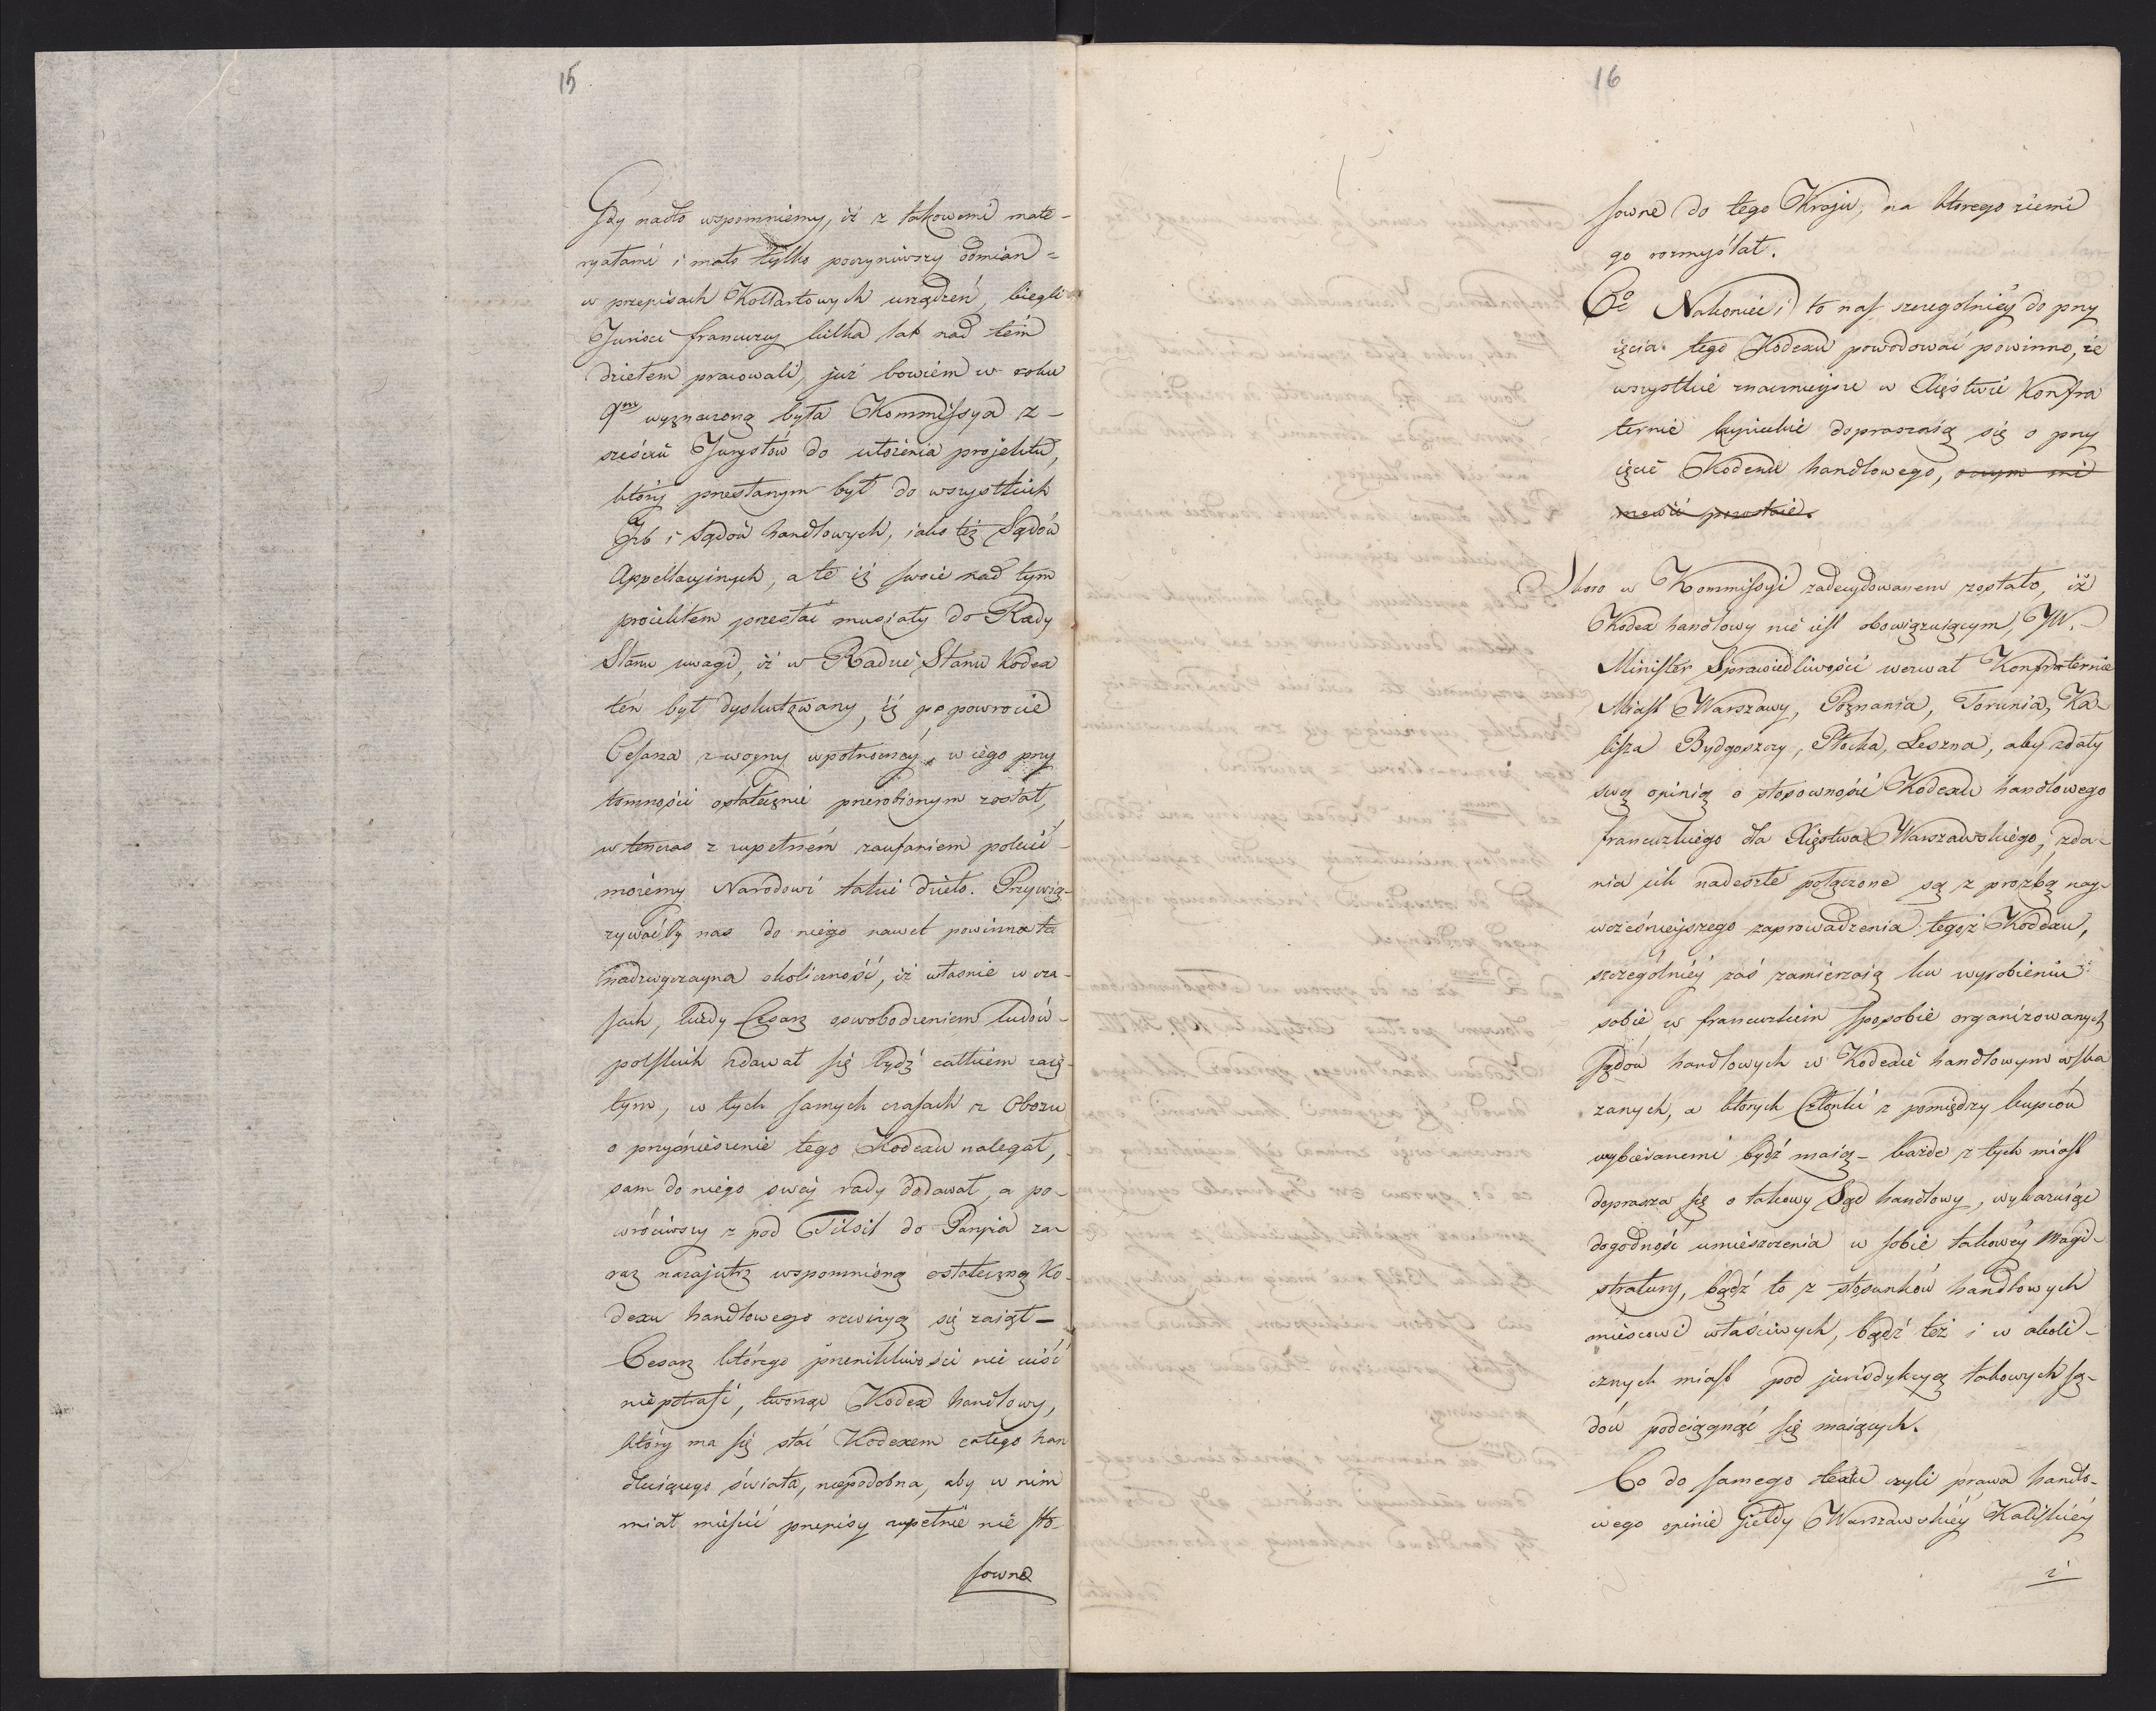 15
Gdy nadto wspomniemy, iż z takowemi mate-
ryałami i mało tylko poczyniwszy odmian =
w przepisach Kolbartowych urządzeń, biegli
Juriści francuzcy kilka lat nad tém
dziełem pracowali, już bowiem w roku
9ym wyznaczoną była Kommissya z -
sześciu Jurystów do ułożenia projektu,
który przesłanym był do wszystkich
Izb i Sądów handlowych, iako też Sądów
Appellacyinych, a te iż swoie nad tym
proiektem przesłać musiały do Rady
Stanu uwagi, iż w Radzie Stanu Kodex
ten był dyskutowany, iż po powrocie
Cesarza z woyny w północney, w iego przy
tomności ostatecznie przerobionym został,
wtenczas z zupełném zaufaniem polecić -
możemy Narodowi takie dzieło. Przywią-
zywaćby nas do niego nawet powinna ta
nadzwyczayna okoliczność, iż własnie w cza-
sach, kiedy Cesarz oswobodzeniem ludów -
polskich zdawał się bydź całkiem zaię-
tym, w tych samych czasach z Obozu
o przyśpieszenie tego Kodexu nalegał,
sam do niego swey rady dodawał, a po-
wróciwszy z pod Tilsit do Paryża za-
raz nazajutrz wspomnioną ostateczną Ko-
dexu handlowego rewizyą się zaiął -
Cesarz którego przenikliwości nic uiść
niepotrafi, tworząc Kodex handlowy,
który ma się stać Kodexem całego han
dluiącego świata, niepodobna, aby w nim
miał mieścić przepisy zupełnie nie sto-
sowne
16
sowne do tego Kraju, na ktorego ziemi
go rozmyślał.
6o Nakoniec i to nas szczególniey do przy
ięcia tego Kodexu powodować powinno, że
wszystkie znacznieysze w Xięstwie Konfra
ternie kupieckie dopraszaią się o przy
ięcie Kodexu handlowego, o czym mi
mowić pozostaie.
Skoro w Kommissyi zadecydowanem zostało, iż
Kodex handlowy nie iest obowiązuiącym, JW.
Minister Sprawiedliwości wezwał Konfraternie
Miast Warszawy, Poznania, Torunia, Ka-
lisza Bydgoszczy, Płocka, Leszna, aby zdały
swą opinią o stosowności Kodexu handlowego
francuzkiego dla Xięstwa Warszawskiego; zda-
nia ich nadeszłe połączone są z prozbą nay-
wcześnieyszego zaprowadzenia tegoż Kodexu,
szczególniéy zaś zamierzaią ku wyrobieniu
sobie w francuzkim sposobie organizowanych
Sądów handlowych w Kodexie handlowym wska
zanych, a ktorych Członki z pomiędzy kupców
wybieranemi bydź maią - każde z tych miast
doprasza się o takowy Sąd handlowy, wykazuiąc
dogodność umieszczenia w sobie takowéy Magi-
stratury, bądź to z stosunków handlowych
mieyscowi właściwych, bądź też i w okoli-
cznych miast pod jurisdykcyą takowych Są-
dów podciągnąć się maiących.
Co do samego textu czyli prawa handlo-
wego opinie Giełdy Warszawskiéy Kaliskiéy
i